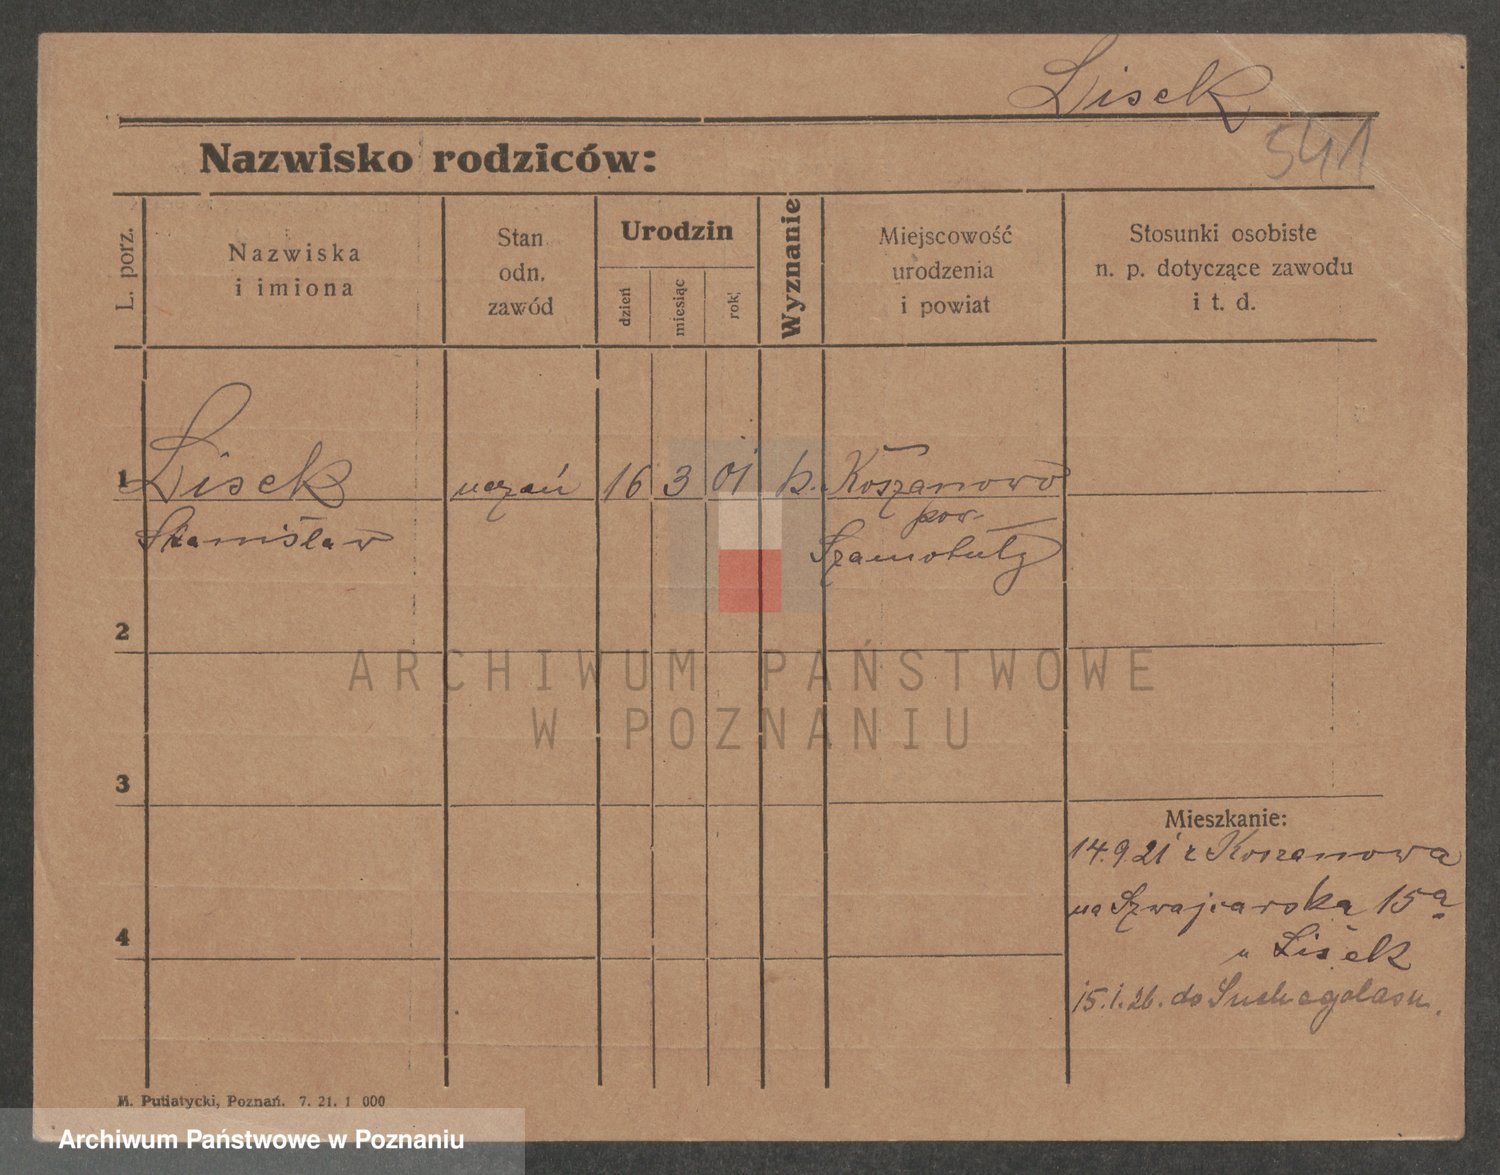 Lisek
541
Nazwisko rodziców:
L. porz.
Nazwiska
i imiona
Stan
odn.
zawód
Urodzin
dzień
miesiąc
rok
Wyznanie
Miejscowość
urodzenia
i powiat
Stosunki osobiste
n. p. dotyczące zawodu
i t. d.
1 Lisek uczeń 16 3 01 k. Koszanowo
Stanisław
pow.
Szamotuły
2
ARCHIWUM PAŃSTWOWE
W POZNANIU
3
Mieszkanie:
14.9 21 z Koszanowa
na Szwajcarska 15a
4
u Lisek
15.1.26. do Suchegolasu.
M. Putiatycki, Poznań. 7. 21. 1 000
Archiwum Państwowe w Poznaniu